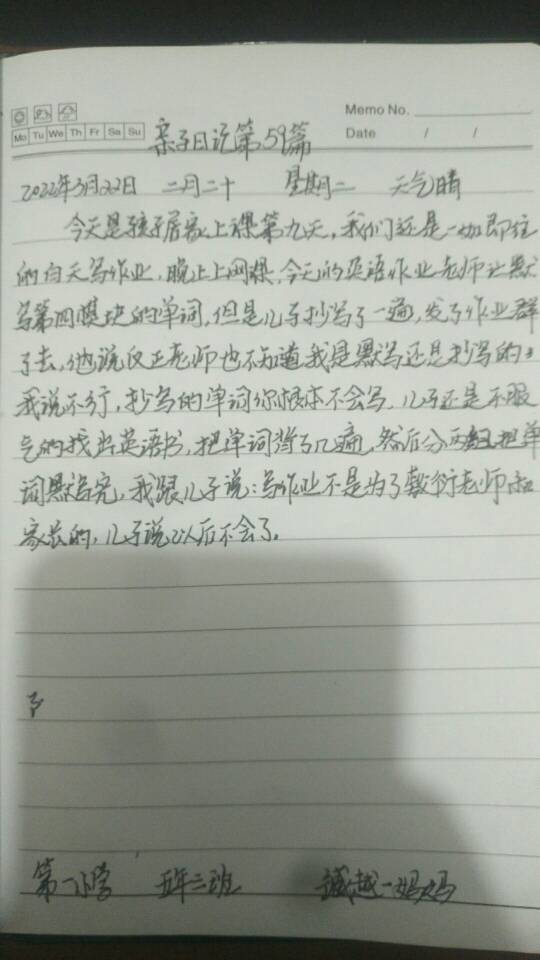 Memo No.
Mo Tu We Th Fr Sa Su
Date / /
亲子日记第59篇
2022年3月22日 二月二十 星期二 天气晴
今天是孩子居家上课第九天，我们还是一如即往
的白天写作业，晚上上网课，今天的英语作业老师让默
写第四模块的单词，但是儿子抄写了一遍，发了作业群
了去，他说反正老师也不知道我是默写还是抄写的。
我说不行，抄写的单词你根本不会写，儿子还是不服
气的找出英语书，把单词背了几遍，然后分两组把单
词默写完，我跟儿子说：写作业不是为了敷衍老师和
家长的，儿子说以后不会了。
第一小学 五年二班 越一妈妈